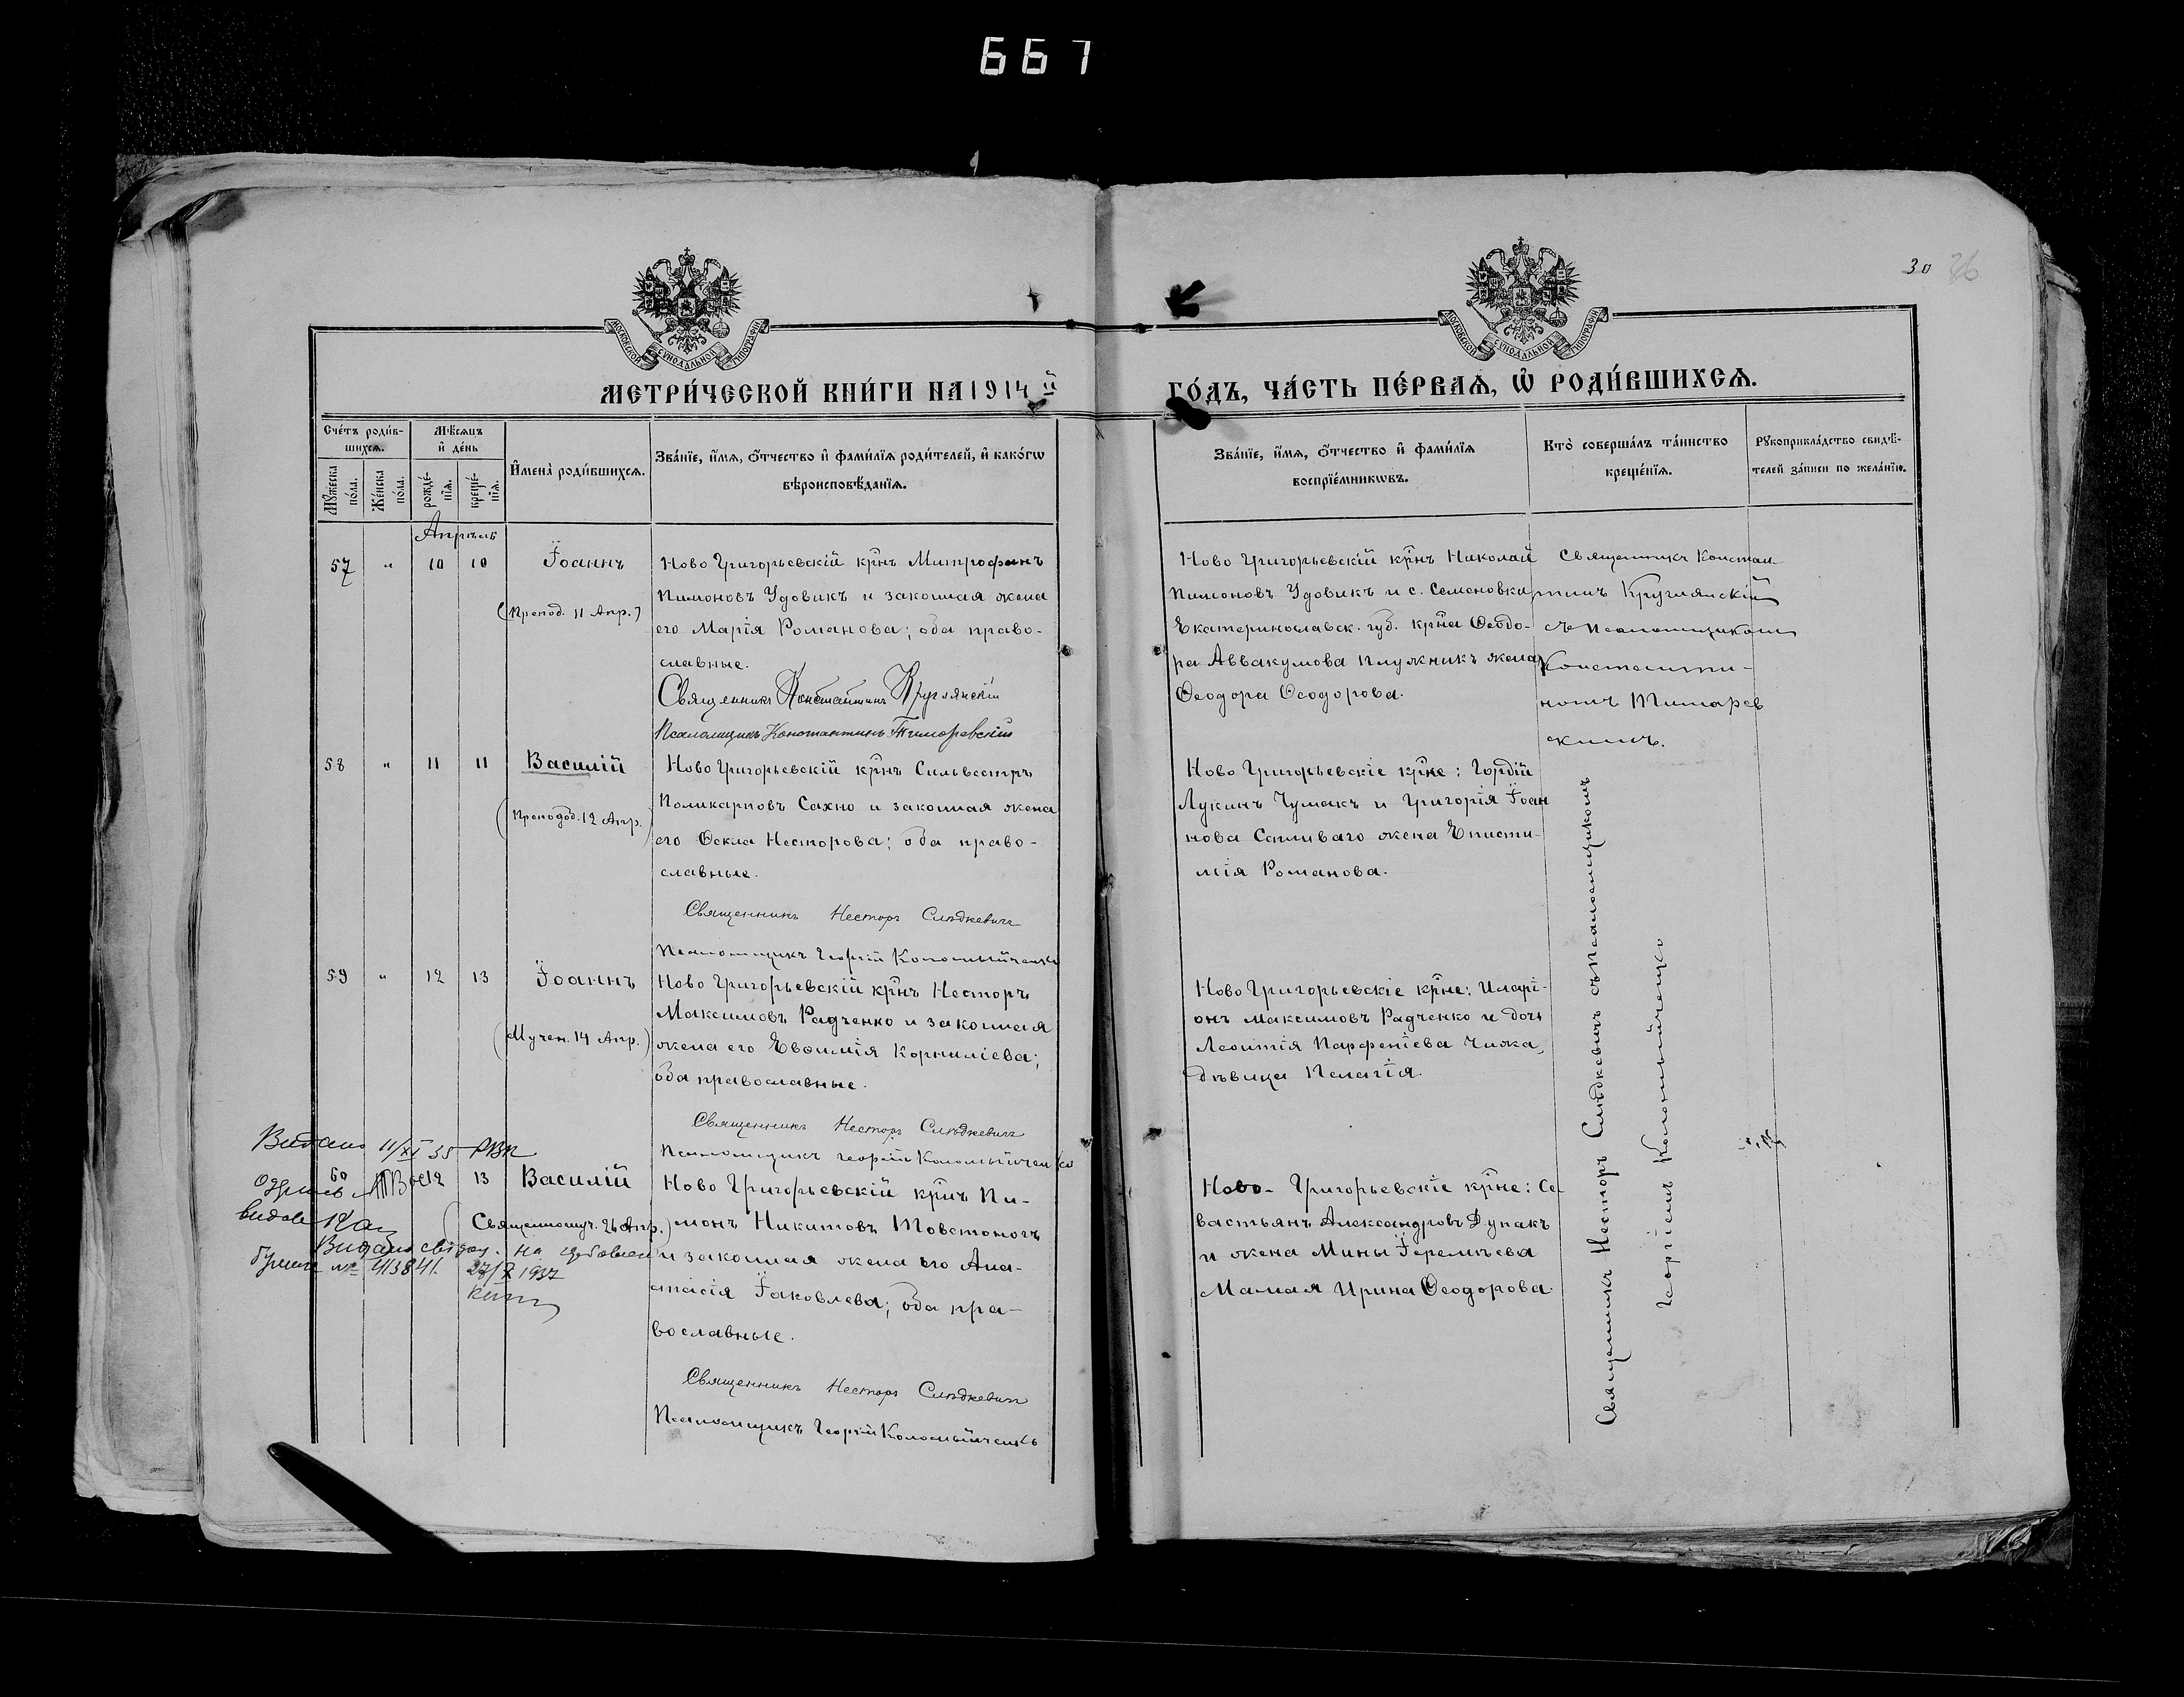 667
30 26
МОСКОВСКОЙ СѴНОДАЛЬНОЙ ТИПОГРАФІИ
МОСКОВСКОЙ СѴНОДАЛЬНОЙ ТИПОГРАФІИ
МЕТРИ́ЧЕСКОЙ КНИ́ГИ НА 1914 й
ГО́ДЪ, ЧА́СТЬ ПЕ́РВАѦ, Ѡ҆ РОДИ́ВШИХСѦ.
Сче́тъ роди́в-
шихсѧ.
Мꙋ́жеска по́ла.
Же́нска по́ла.
Мѣ́сѧцъ
и҆ де́нь
рожде́-
нїѧ.
креще́-
нїѧ.
И҆мена̀ роди́вшихсѧ.
Зва́нїе, и҆́мѧ, ѻ҆́тчество и҆ фами́лїѧ роди́телей, и҆ како́гѡ
вѣроисповѣ́данїѧ.
Зва́нїе, и҆́мѧ, ѻ҆́тчество и҆ фами́лїѧ
воспрїе́мникѡвъ.
Кто̀ соверша́лъ та́инство
креще́нїѧ.
Рꙋкоприкла́дство свидѣ́-
телей за́писи по жела́нїю.
Апрѣль
57 " 10 10 Їоаннъ
(Препод. 11 Апр.)
Ново Григорьевскій крнъ Митрофанъ
Пимоновъ Удовикъ и законная жена
его Марія Романова; оба право-
славные.
Священникъ Константинъ Круглянскій
Псаломщикъ Константинъ
Ново Григорьевскій крнъ Николай
Пимоновъ Удовикъ и с. Семеновки,
Екатеринославск. губ. крна Ѳеодо-
ра Аввакумова Плужникъ жена
Ѳеодора Ѳеодорова.
Священникъ Констан-
тинъ Круглянскій
съ псаломщикомъ
Константи-
номъ
58 " 11 11 Василій
(Преподоб. 12 Апр.)
Ново Григорьевскій крнъ Сильвестръ
Поликарповъ Сахно и законная жена
его Ѳекла Несторова; оба право-
славные.
Священникъ Несторъ Слѣдкевичъ
Псаломщикъ Георгій Коломыйченко
Ново Григорьевскіе крне: Гордій
Лукинъ Чумакъ и Григорія Їоан
нова Сатливаго жена Еписти-
мія Романова.
59 " 12 13 Їоаннъ
(Мучен. 14 Апр.)
Ново Григорьевскій крнъ Несторъ
Максимовъ Радченко и законная
жена его Евѳимія Корниліева;
оба православные.
Священникъ Несторъ Слѣдкевичъ
Псаломщикъ Георгій Коломыйченко
Ново Григорьевскіе крне: Иларі-
онъ Максимовъ Радченко и дочь
Леонтія Парфеніева Чижа,
дѣвица Пелагія.
Видано 11/XI 35
60 12 13 Василій
(Священномуч. 26 Апр.)
Видано на
№ 413841. 1937
Ново Григорьевскій крнъ Пи-
монъ Никитовъ Товстоногъ
и законная жена его Ана-
стасія Їаковлева; оба пра-
вославные.
Священникъ Несторъ Слѣдкевичъ
Псаломщикъ Георгій Коломыйченко
Ново- Григорьевскіе крне: Се-
вастьянъ Александровъ Дупакъ
и жена Мины Їеремѣева
Мамая Ирина Ѳеодорова.
Священникъ Несторъ Слѣдкевичъ съ псаломщикомъ
Георгіемъ Коломыйченко